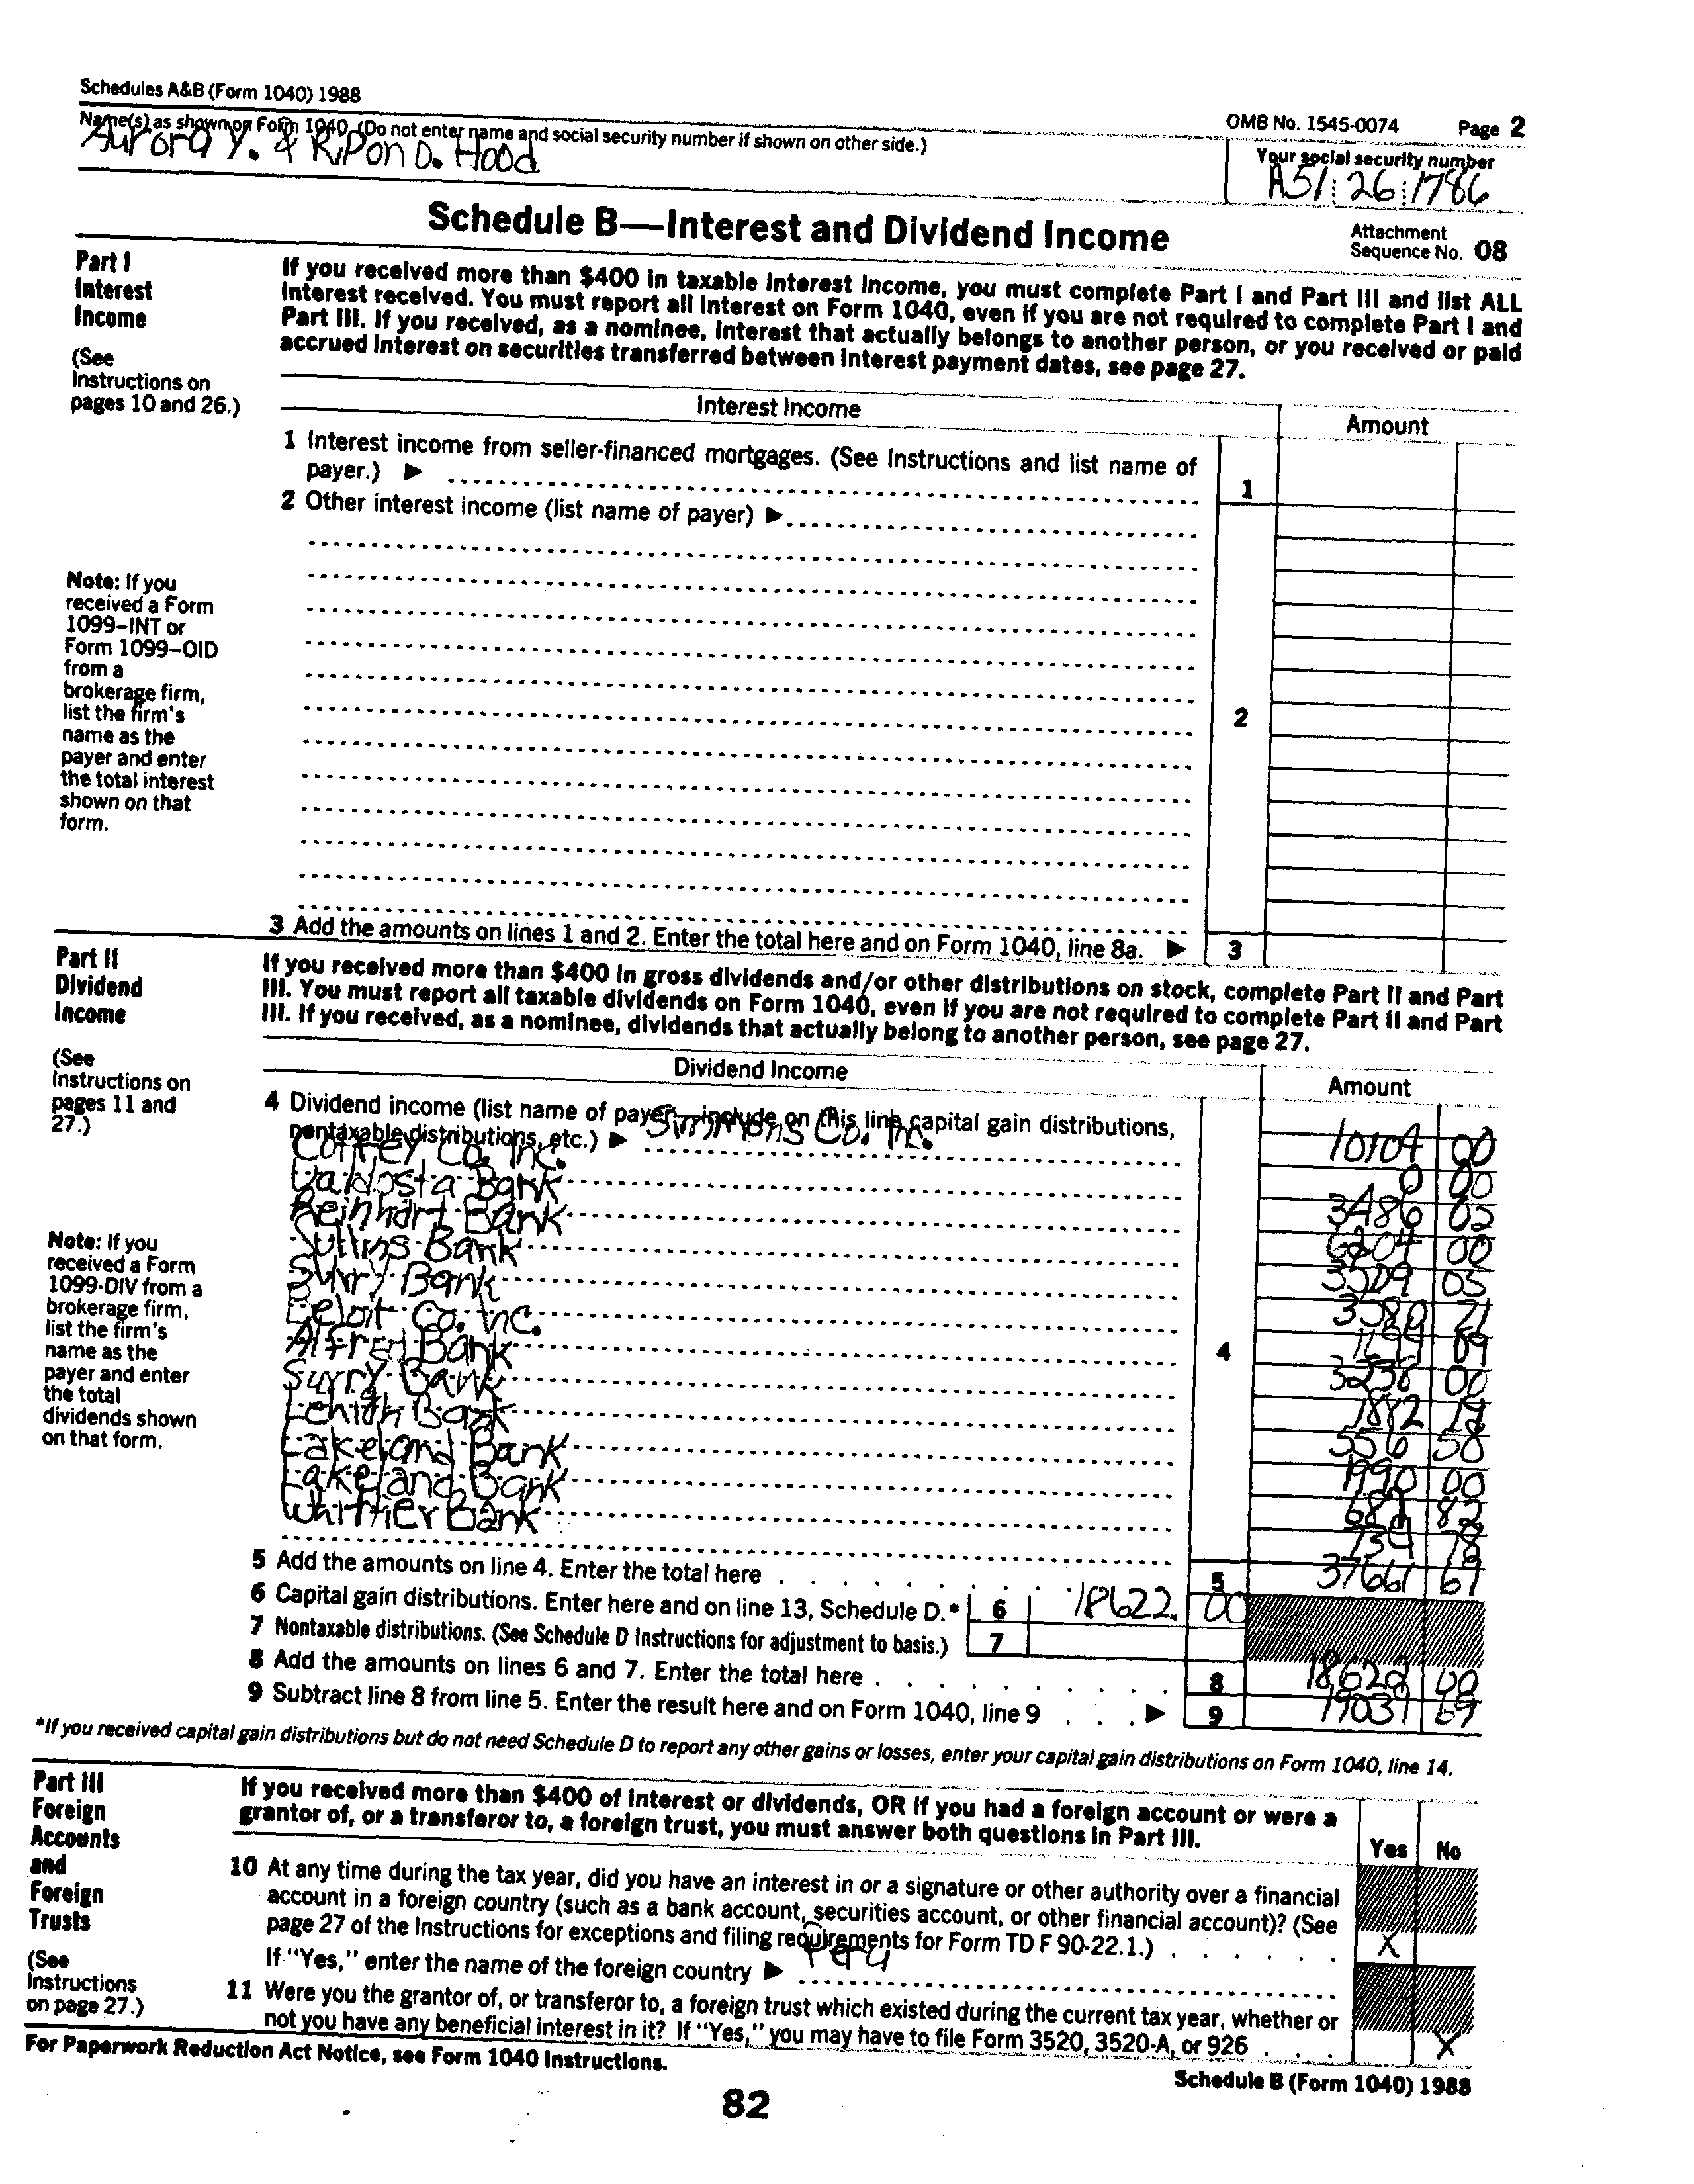 Schedules A&B (Form 1040) 1988
OMB No. 1545-0074 Page 2
Name(s) as shown on Form 1040. (Do not enter name and social security number if shown on other side.)
Aurora Y. & Ripon D. Hood
Your social security number
A51 26 1786
Schedule B—Interest and Dividend Income
Attachment
Sequence No. 08
Part I
Interest
Income
(See
Instructions on
pages 10 and 26.)
If you received more than $400 in taxable interest income, you must complete Part I and Part III and list ALL
interest received. You must report all interest on Form 1040, even if you are not required to complete Part I and
Part III. If you received, as a nominee, interest that actually belongs to another person, or you received or paid
accrued interest on securities transferred between interest payment dates, see page 27.
Interest Income
Amount
1 Interest income from seller-financed mortgages. (See Instructions and list name of
payer.) ▶
1
2 Other interest income (list name of payer) ▶
Note: If you
received a Form
1099-INT or
Form 1099-OID
from a
brokerage firm,
list the firm's
name as the
payer and enter
the total interest
shown on that
form.
2
3 Add the amounts on lines 1 and 2. Enter the total here and on Form 1040, line 8a. ▶ 3
Part II
Dividend
Income
(See
Instructions on
pages 11 and
27.)
If you received more than $400 in gross dividends and/or other distributions on stock, complete Part II and Part
III. You must report all taxable dividends on Form 1040, even if you are not required to complete Part II and Part
III. If you received, as a nominee, dividends that actually belong to another person, see page 27.
Dividend Income
Amount
4 Dividend income (list name of payer—include on this line capital gain distributions,
nontaxable distributions, etc.) ▶ Simmons Co. Inc. 10104 00
Coffey Co. Inc. 0 00
Valdosta Bank 3486 02
Reinhart Bank 6204 00
Sullins Bank 3509 05
Surry Bank 3580 21
Beloit Co. Inc.
Alfred Bank 3238 00
Surry Bank
Lehigh Bank 556 50
Lakeland Bank 1990 00
Lakeland Bank
Whittier Bank 734 78
4
Note: If you
received a Form
1099-DIV from a
brokerage firm,
list the firm's
name as the
payer and enter
the total
dividends shown
on that form.
5 Add the amounts on line 4. Enter the total here 5 37661 69
6 Capital gain distributions. Enter here and on line 13, Schedule D.* 6 18622. 00
7 Nontaxable distributions. (See Schedule D Instructions for adjustment to basis.) 7
8 Add the amounts on lines 6 and 7. Enter the total here 8 18622 00
9 Subtract line 8 from line 5. Enter the result here and on Form 1040, line 9 ▶ 9 19039 69
*If you received capital gain distributions but do not need Schedule D to report any other gains or losses, enter your capital gain distributions on Form 1040, line 14.
Part III
Foreign
Accounts
and
Foreign
Trusts
(See
Instructions
on page 27.)
If you received more than $400 of interest or dividends, OR if you had a foreign account or were a
grantor of, or a transferor to, a foreign trust, you must answer both questions in Part III.
Yes No
10 At any time during the tax year, did you have an interest in or a signature or other authority over a financial
account in a foreign country (such as a bank account, securities account, or other financial account)? (See
page 27 of the Instructions for exceptions and filing requirements for Form TD F 90-22.1.) X
If "Yes," enter the name of the foreign country ▶ Peru
11 Were you the grantor of, or transferor to, a foreign trust which existed during the current tax year, whether or
not you have any beneficial interest in it? If "Yes," you may have to file Form 3520, 3520-A, or 926 X
For Paperwork Reduction Act Notice, see Form 1040 Instructions.
Schedule B (Form 1040) 1988
82